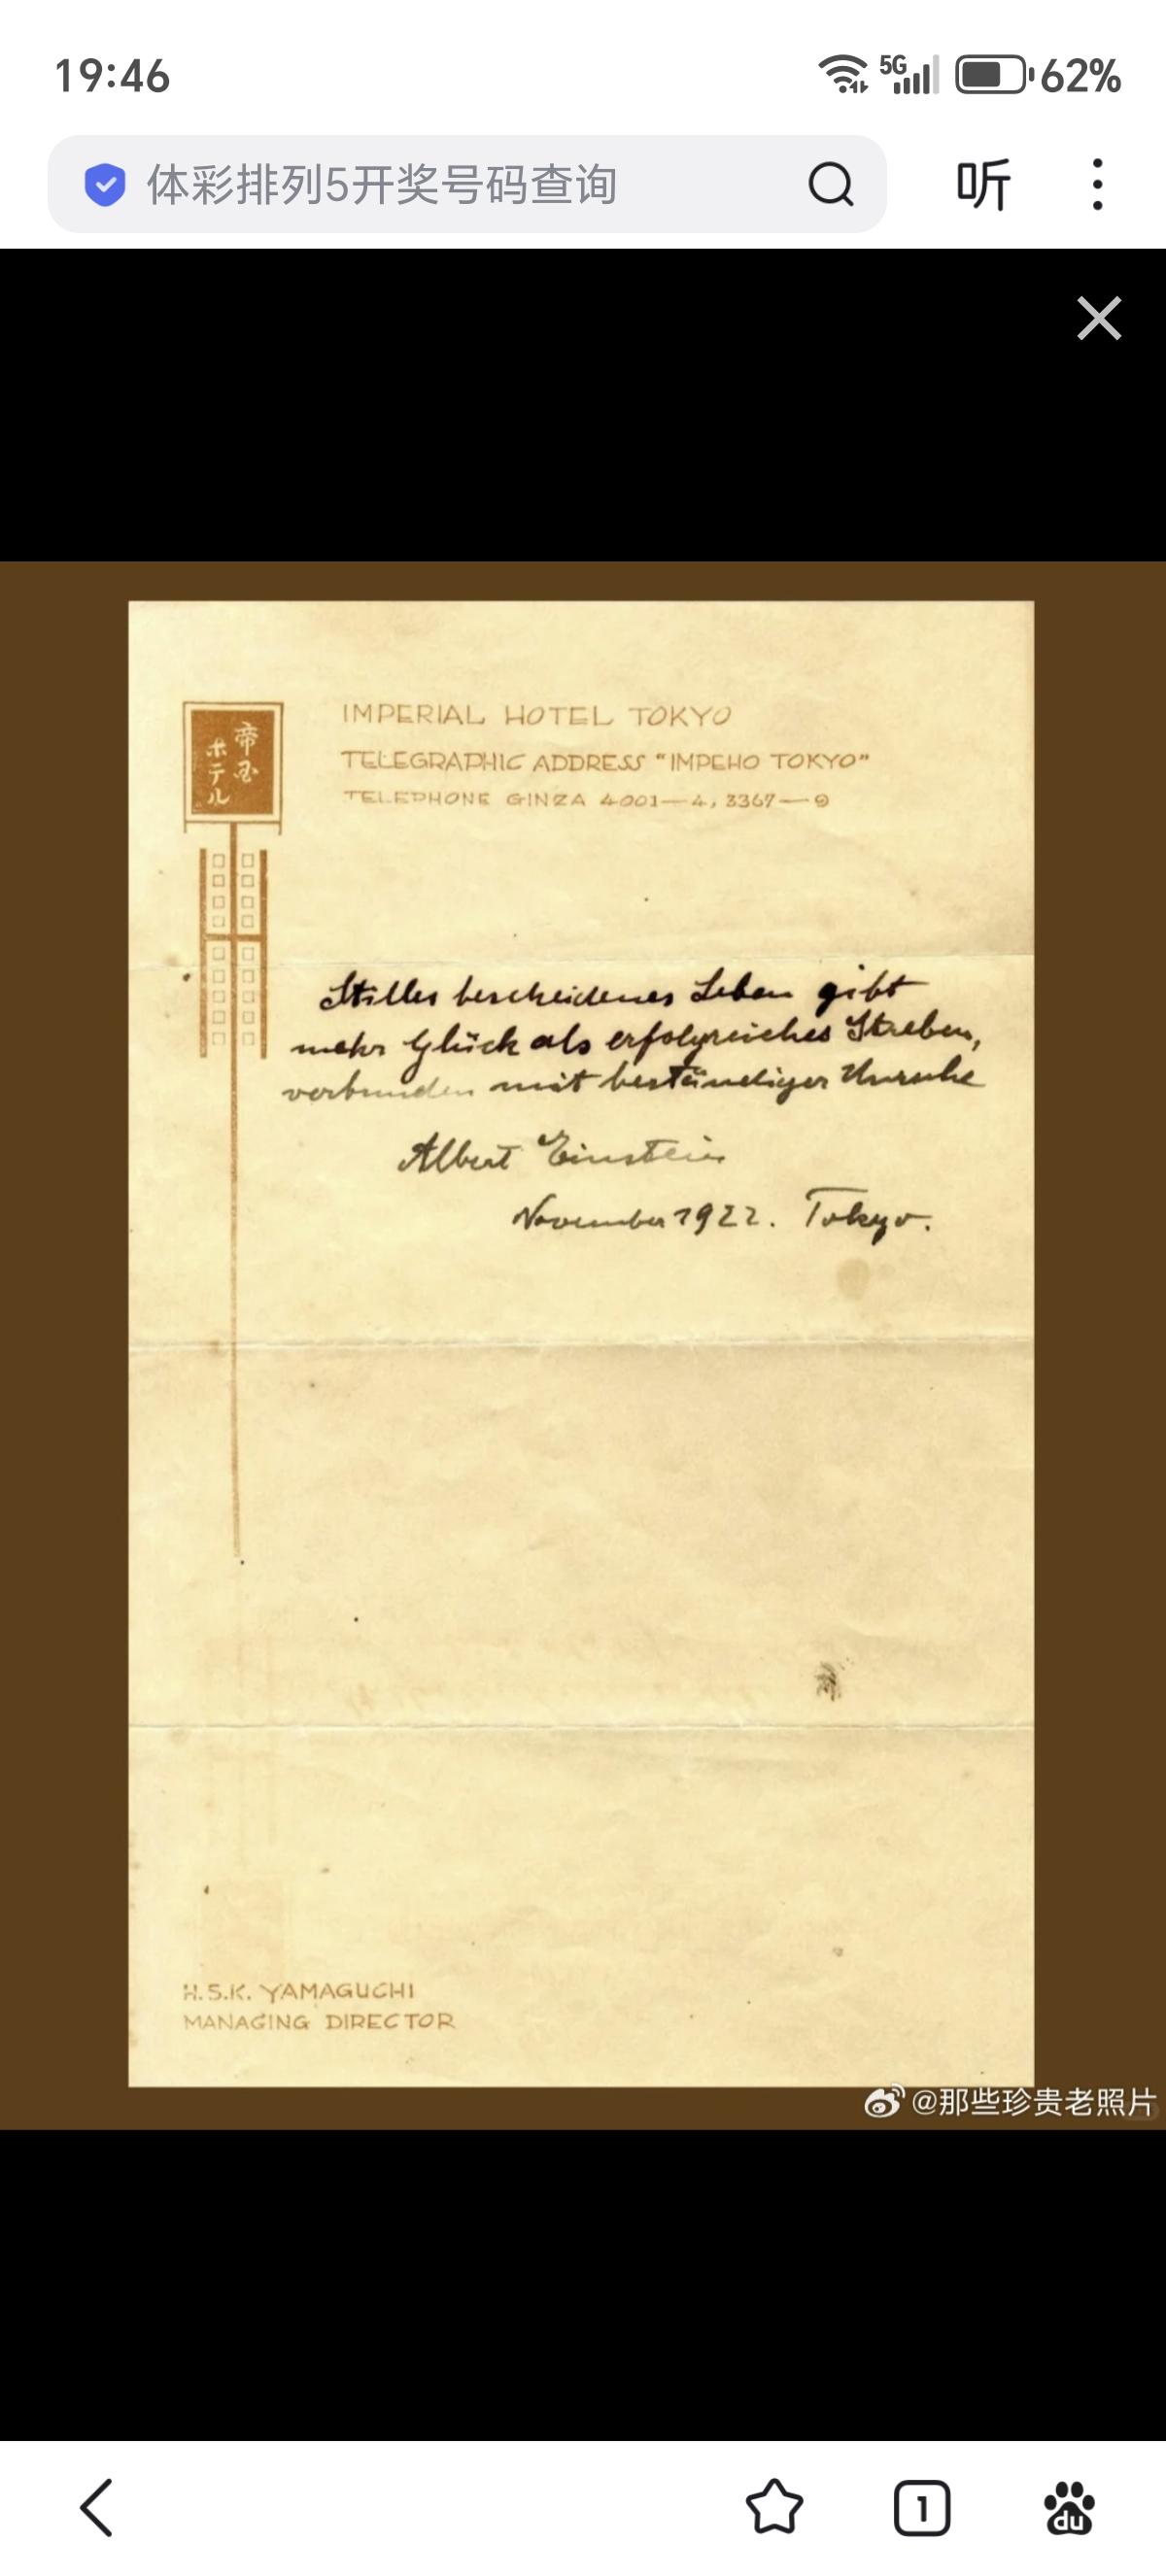 19:46
5G
62%
体彩排列5开奖号码查询
听
帝国
ホテル
IMPERIAL HOTEL TOKYO
TELEGRAPHIC ADDRESS "IMPEHO TOKYO"
TELEPHONE GINZA 4001—4, 3367—9
Stilles bescheidenes Leben gibt
mehr Glück als erfolgreiches Streben,
verbunden mit beständiger Unruhe
Albert Einstein
November 1922. Tokyo.
H.S.K. YAMAGUCHI
MANAGING DIRECTOR
@那些珍贵老照片
1
du